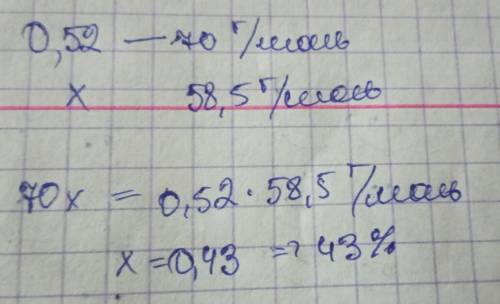 0,52 — 70 г/моль
x 58,5 г/моль
70x = 0,52 · 58,5 г/моль
x = 0,43 => 43%